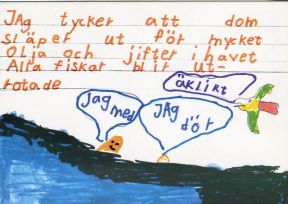 JAg tycker att dom
släper ut för mycket
Olja och jifter i havet
Alla fiskar blir ut-
rotade
äklikt
jag med
JAg dör